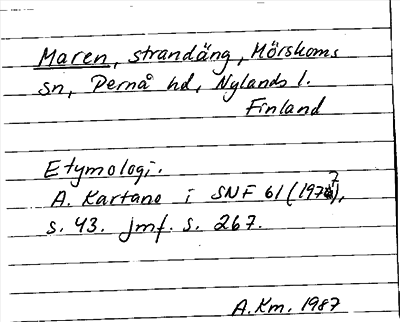 Maren, strandäng, Mörskoms
sn, Pernå hd, Nylands l.
Finland
Etymologi.
A. Kartano i SNF 61 (1977),
s. 43. jmf. s. 267.
A.Km. 1987